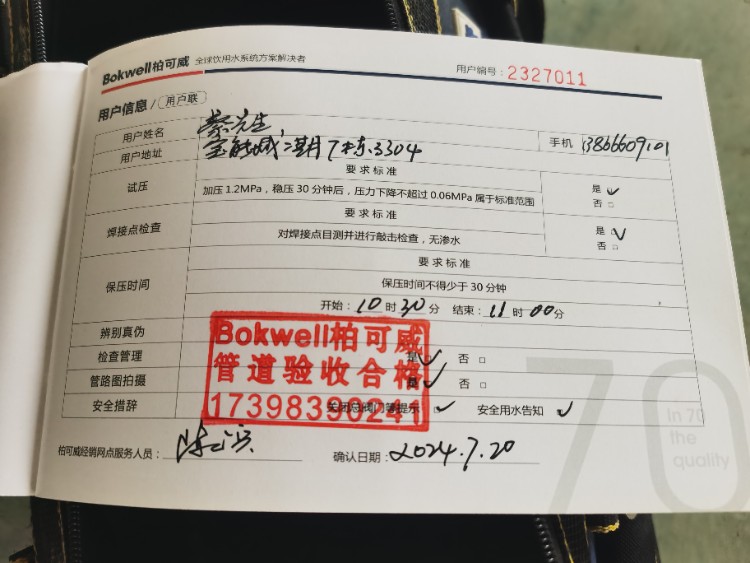 Bokwell柏可威 全球饮用水系统方案解决者
用户编号：2327011
用户信息/用户联
用户姓名 蔡先生
手机 13866609101
用户地址 二期7栋3304
要求标准
试压 加压1.2MPa，稳压30分钟后，压力下降不超过0.06MPa属于标准范围 是 ✓
否 □
要求标准
焊接点检查 对焊接点目测并进行敲击检查，无渗水 是 □ ✓
否 □
要求标准
保压时间 保压时间不得少于30分钟
开始：10时30分 结束：11时00分
辨别真伪
检查管理 是 ✓ 否 □
管路图拍摄 是 ✓ 否 □
安全措辞 关闭总阀门等提示 ✓ 安全用水告知 ✓
Bokwell柏可威
管道验收合格
17398390241
柏可威经销网点服务人员：
确认日期：2024.7.20
70
In 70
the
quality